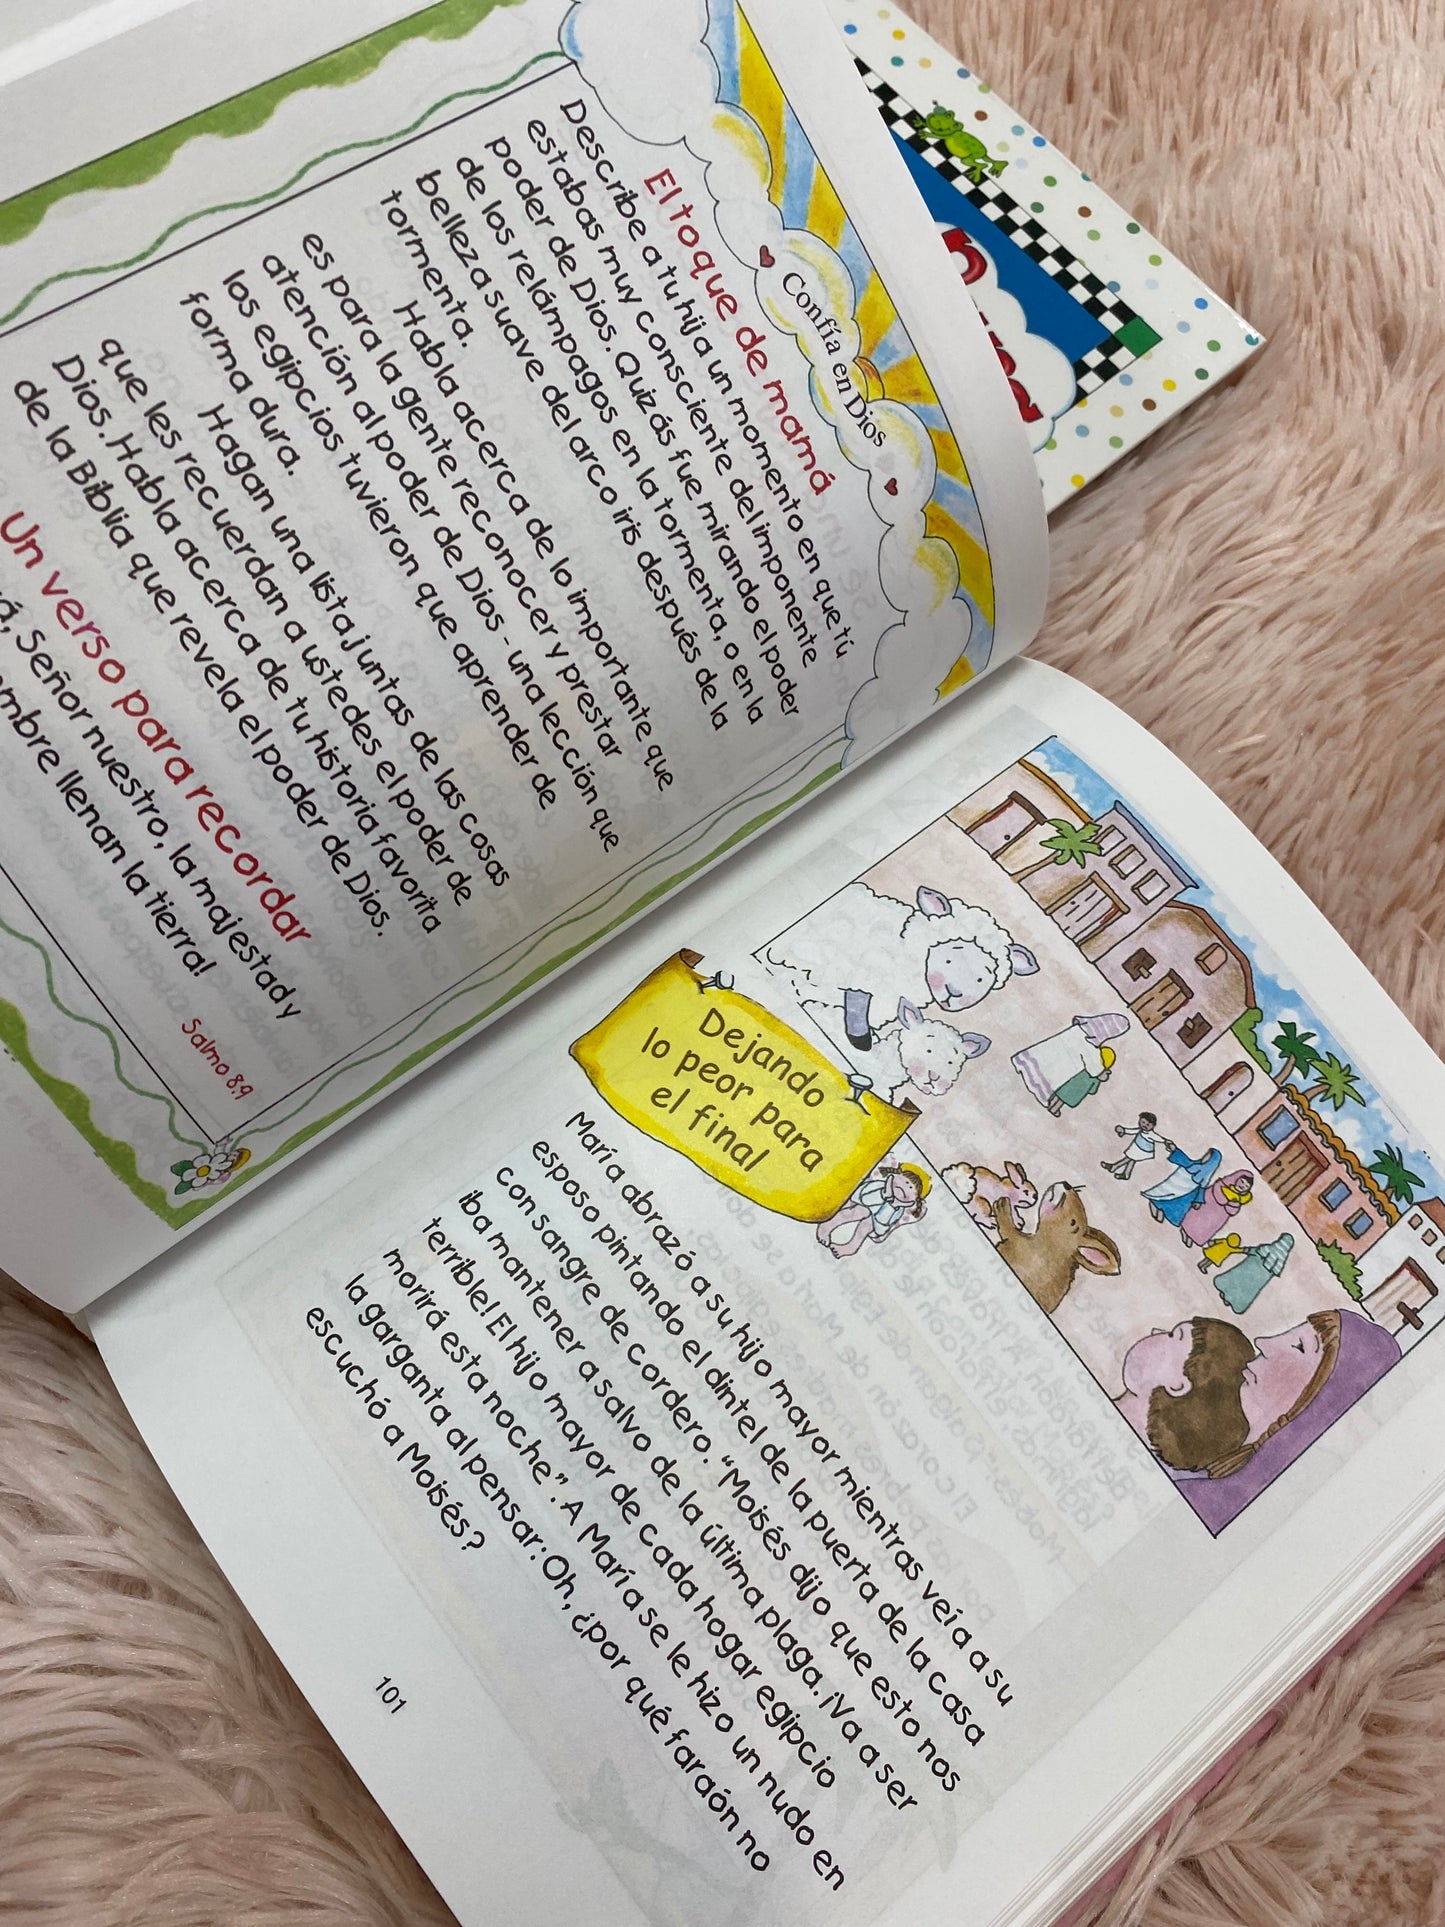 Confía en Dios
El toque de mamá
Describe a tu hija un momento en que tú
estabas muy consciente del imponente
poder de Dios. Quizás fue mirando el poder
de los relámpagos en la tormenta, o en la
belleza suave del arco iris después de la
tormenta.
Habla acerca de lo importante que
es para la gente reconocer y prestar
atención al poder de Dios - una lección que
los egipcios tuvieron que aprender de
forma dura.
Hagan una lista juntas de las cosas
que les recuerdan a ustedes el poder de
Dios. Habla acerca de tu historia favorita
de la Biblia que revela el poder de Dios.
Un verso para recordar
Señor nuestro, la majestad y
llenan la tierra!
Salmo 8:9
Dejando
lo peor para
el final
María abrazó a su hijo mayor mientras veía a su
esposo pintando el dintel de la puerta de la casa
con sangre de cordero. “Moisés dijo que esto nos
iba mantener a salvo de la última plaga. ¡Va a ser
terrible! El hijo mayor de cada hogar egipcio
morirá esta noche”. A María se le hizo un nudo en
la garganta al pensar: Oh, ¿por qué faraón no
escuchó a Moisés?
101